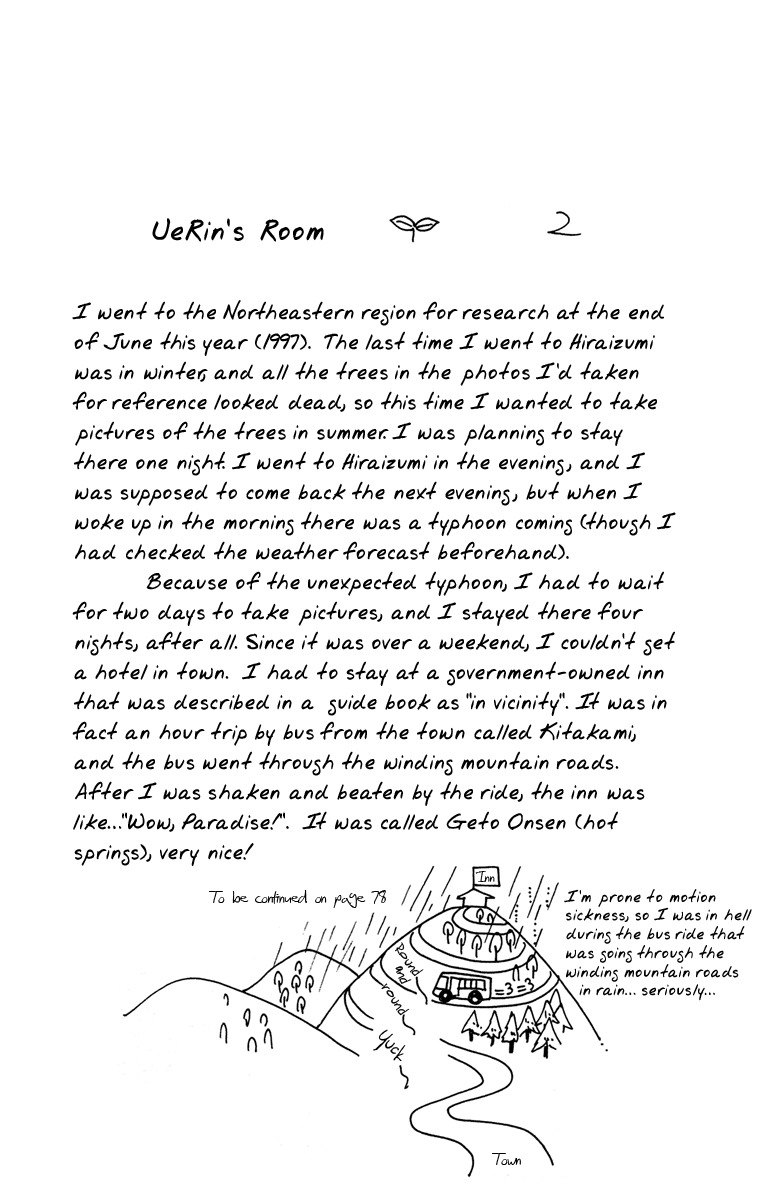 UeRin's Room 2
I went to the Northeastern region for research at the end
of June this year (1997). The last time I went to Hiraizumi
was in winter, and all the trees in the photos I'd taken
for reference looked dead, so this time I wanted to take
pictures of the trees in summer. I was planning to stay
there one night. I went to Hiraizumi in the evening, and I
was supposed to come back the next evening, but when I
woke up in the morning there was a typhoon coming (though I
had checked the weather forecast beforehand).
Because of the unexpected typhoon, I had to wait
for two days to take pictures, and I stayed there four
nights, after all. Since it was over a weekend, I couldn't get
a hotel in town. I had to stay at a government-owned inn
that was described in a guide book as "in vicinity". It was in
fact an hour trip by bus from the town called Kitakami,
and the bus went through the winding mountain roads.
After I was shaken and beaten by the ride, the inn was
like..."Wow, Paradise!". It was called Geto Onsen (hot
springs), very nice!
To be continued on page 78
Inn
I'm prone to motion
sickness, so I was in hell
during the bus ride that
was going through the
winding mountain roads
in rain... seriously...
Round
and
round
Yuck
Town